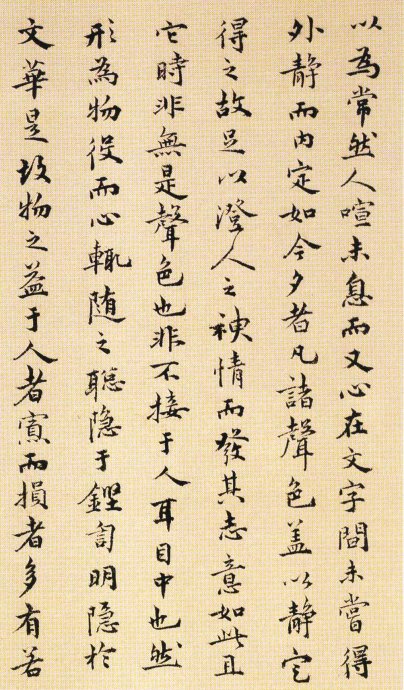 以為常然人喧未息而又心在文字間未嘗得
外靜而内定如今夕者凡諸聲色盖以靜定
得之故足以澄人之神情而發其志意如此且
它時非無是聲色也非不接于人耳目中也然
形為物役而心輒随之聰隐于鏗訇明隐於
文華是故物之益于人者寡而損者多有若